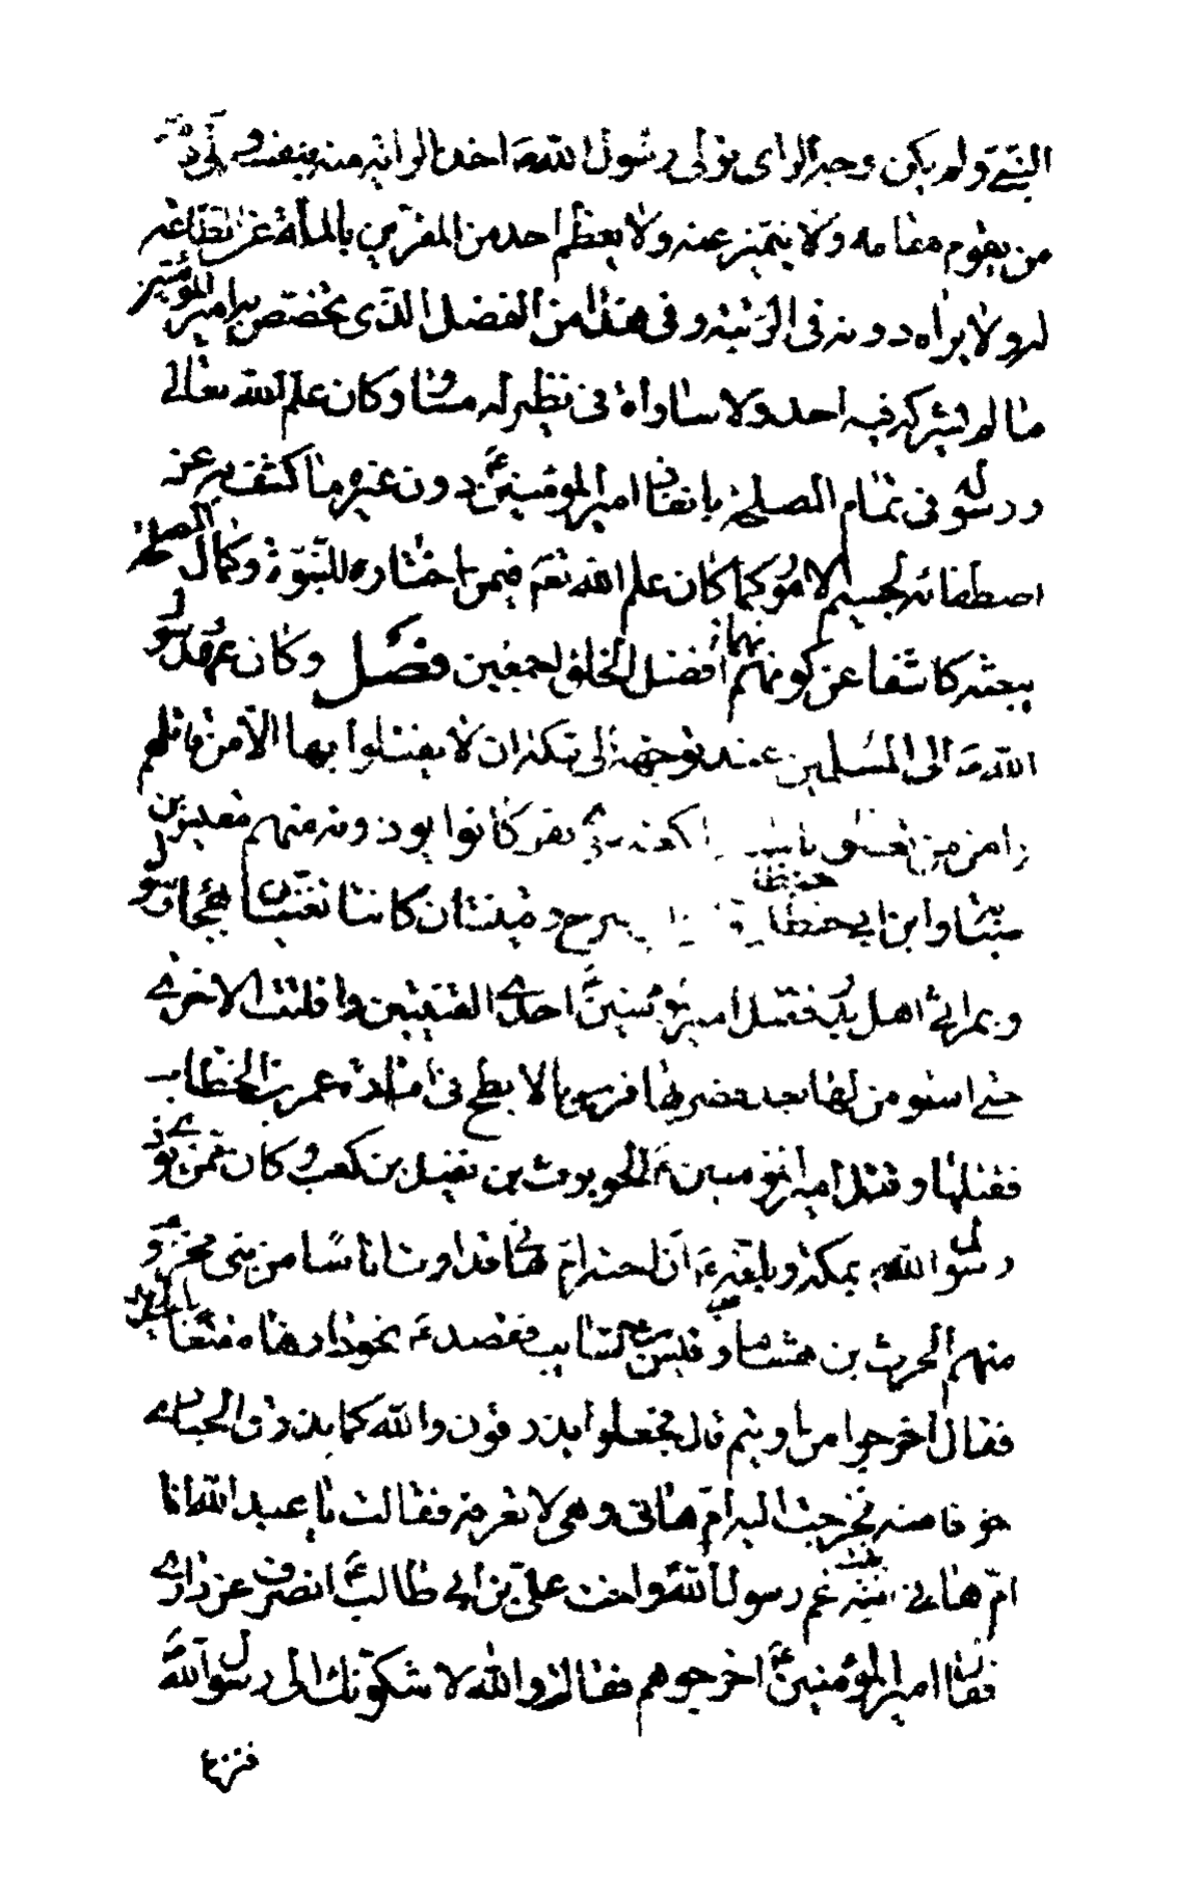 النبي ولم يكن وجه الرأى تولى رسول الله ص اخذ الراية منه بنفسه ولى ذلك
من يقوم مقامه ولا يتميز عنه ولا يعظم احد من المقربين بالملة عن الطاعة
له ولا يراه دونه فى الرتبة وفى هذا من الفضل الذى تخصص به امير المؤمنين
ما لم يشركه فيه احد ولا ساواه فى نظير له مساو وكان علم الله تعالى
ورسوله فى تمام المصلحة بانفاذ امير المؤمنين ع دون غيره ما كشف به عن
اصطفائه لجسيم الامور كما كان علم الله تعم فيمن اختاره للنبوة وكمال المصلحة
ببعثه كاشفا عن كونهم افضل الخلق اجمعين فصل وكان عهد رسول
الله ص الى المسلمين عند توجهه الى مكة ان لا يقتلوا بها الا من قاتلهم
وامن من تعلق باستار الكعبة سوى نفر كانوا يوذونه منهم مقيس بن
وابن ابي سرح وقينتان كانتا تغنيان بهجاء رسول
وبمراثي اهل بدر فقتل امير المؤمنين ع احدى القينتين وافلتت الاخرى
حتى استومن لها بعد فضربها فرس بالابطح فى امارة عمر بن الخطاب
فقتلها وقتل امير المؤمنين ع الحويرث بن نفيل بن كعب وكان ممن يوذى
رسول الله ص بمكة وبلغه ع ان اخته ام هانى قد اوت اناسا من بني مخزوم
منهم الحرث بن هشام وقيس بن السائب فقصد ع نحو دارها مقنعا بالحديد
فقال اخرجوا من اويتم قال فجعلوا يذرقون والله كما يذرق الحبارى
خوفا منه فخرجت اليه ام هانى وهى لا تعرفه فقالت يا عبد الله انا
ام هانى بنت عم رسول الله واخت على بن ابي طالب ع انصرف عن دارى
فقال امير المؤمنين ع اخرجوهم فقالت والله لا شكونك الى رسول الله ص
فنزع